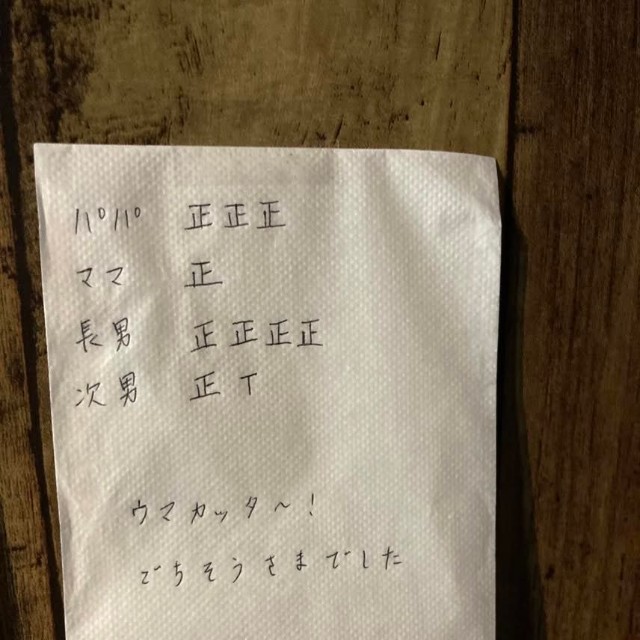 パパ 正正正
ママ 正
長男 正正正正
次男 正T
ウマカッタ〜!
ごちそうさまでした